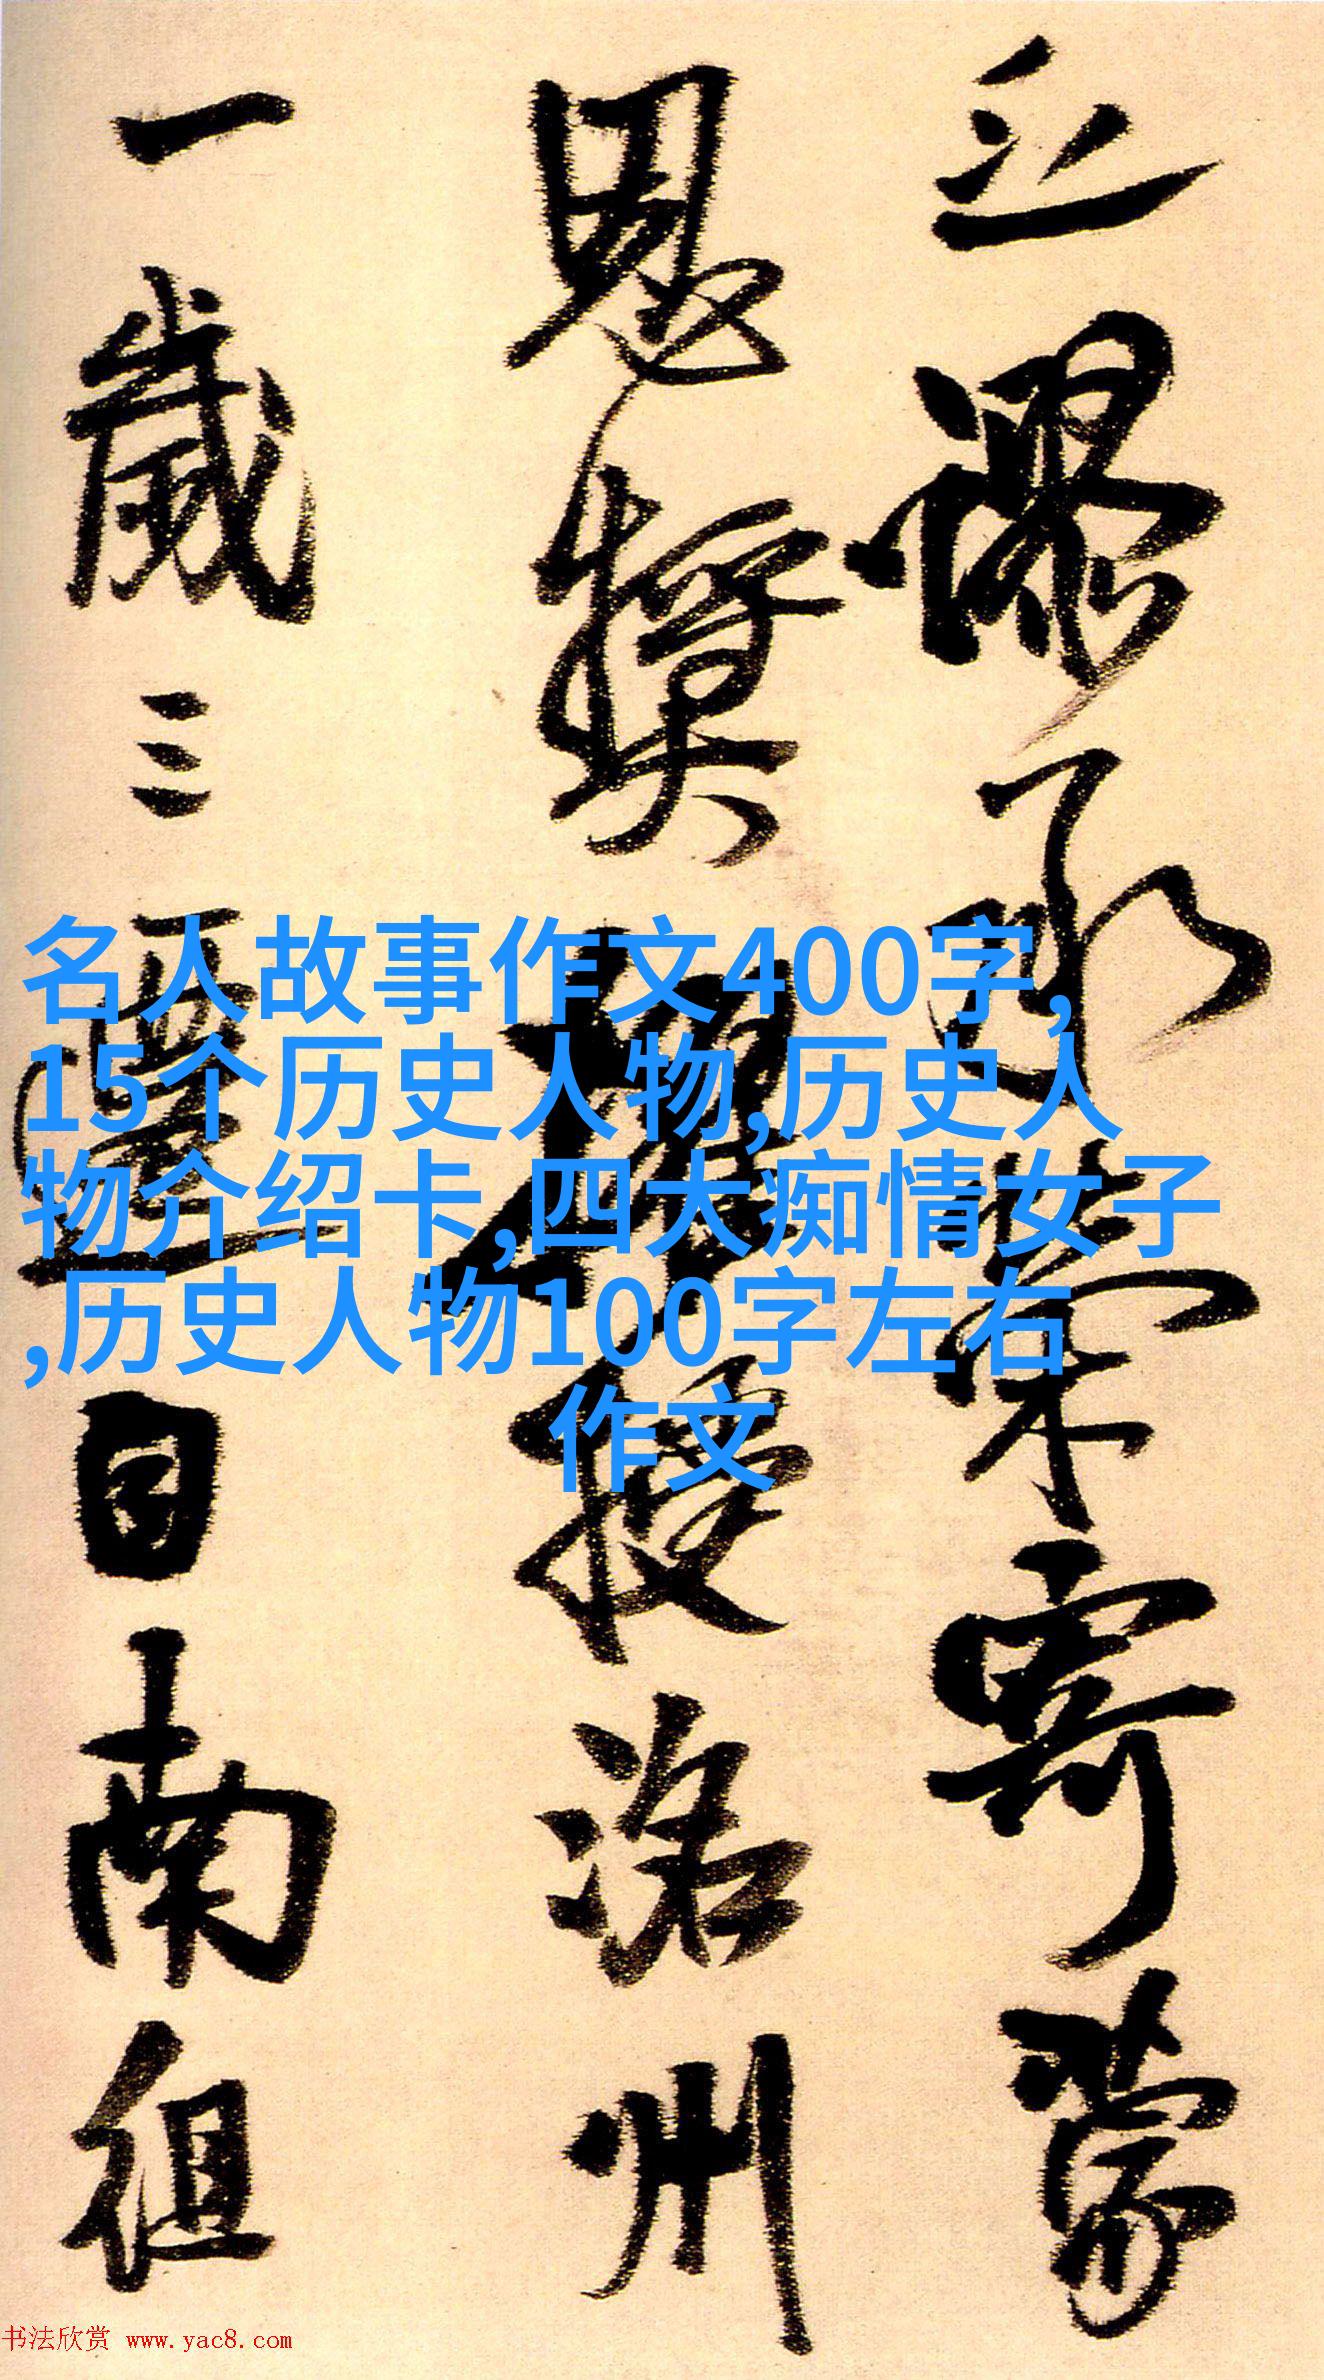 謬承榮寄蒙
恩獎擢授洛州
一歲三遷自南徂
名人故事作文400字,
15个历史人物,历史人
物介绍卡,四大痴情女子
,历史人物100字左右
作文
书法欣赏 www.yac8.com